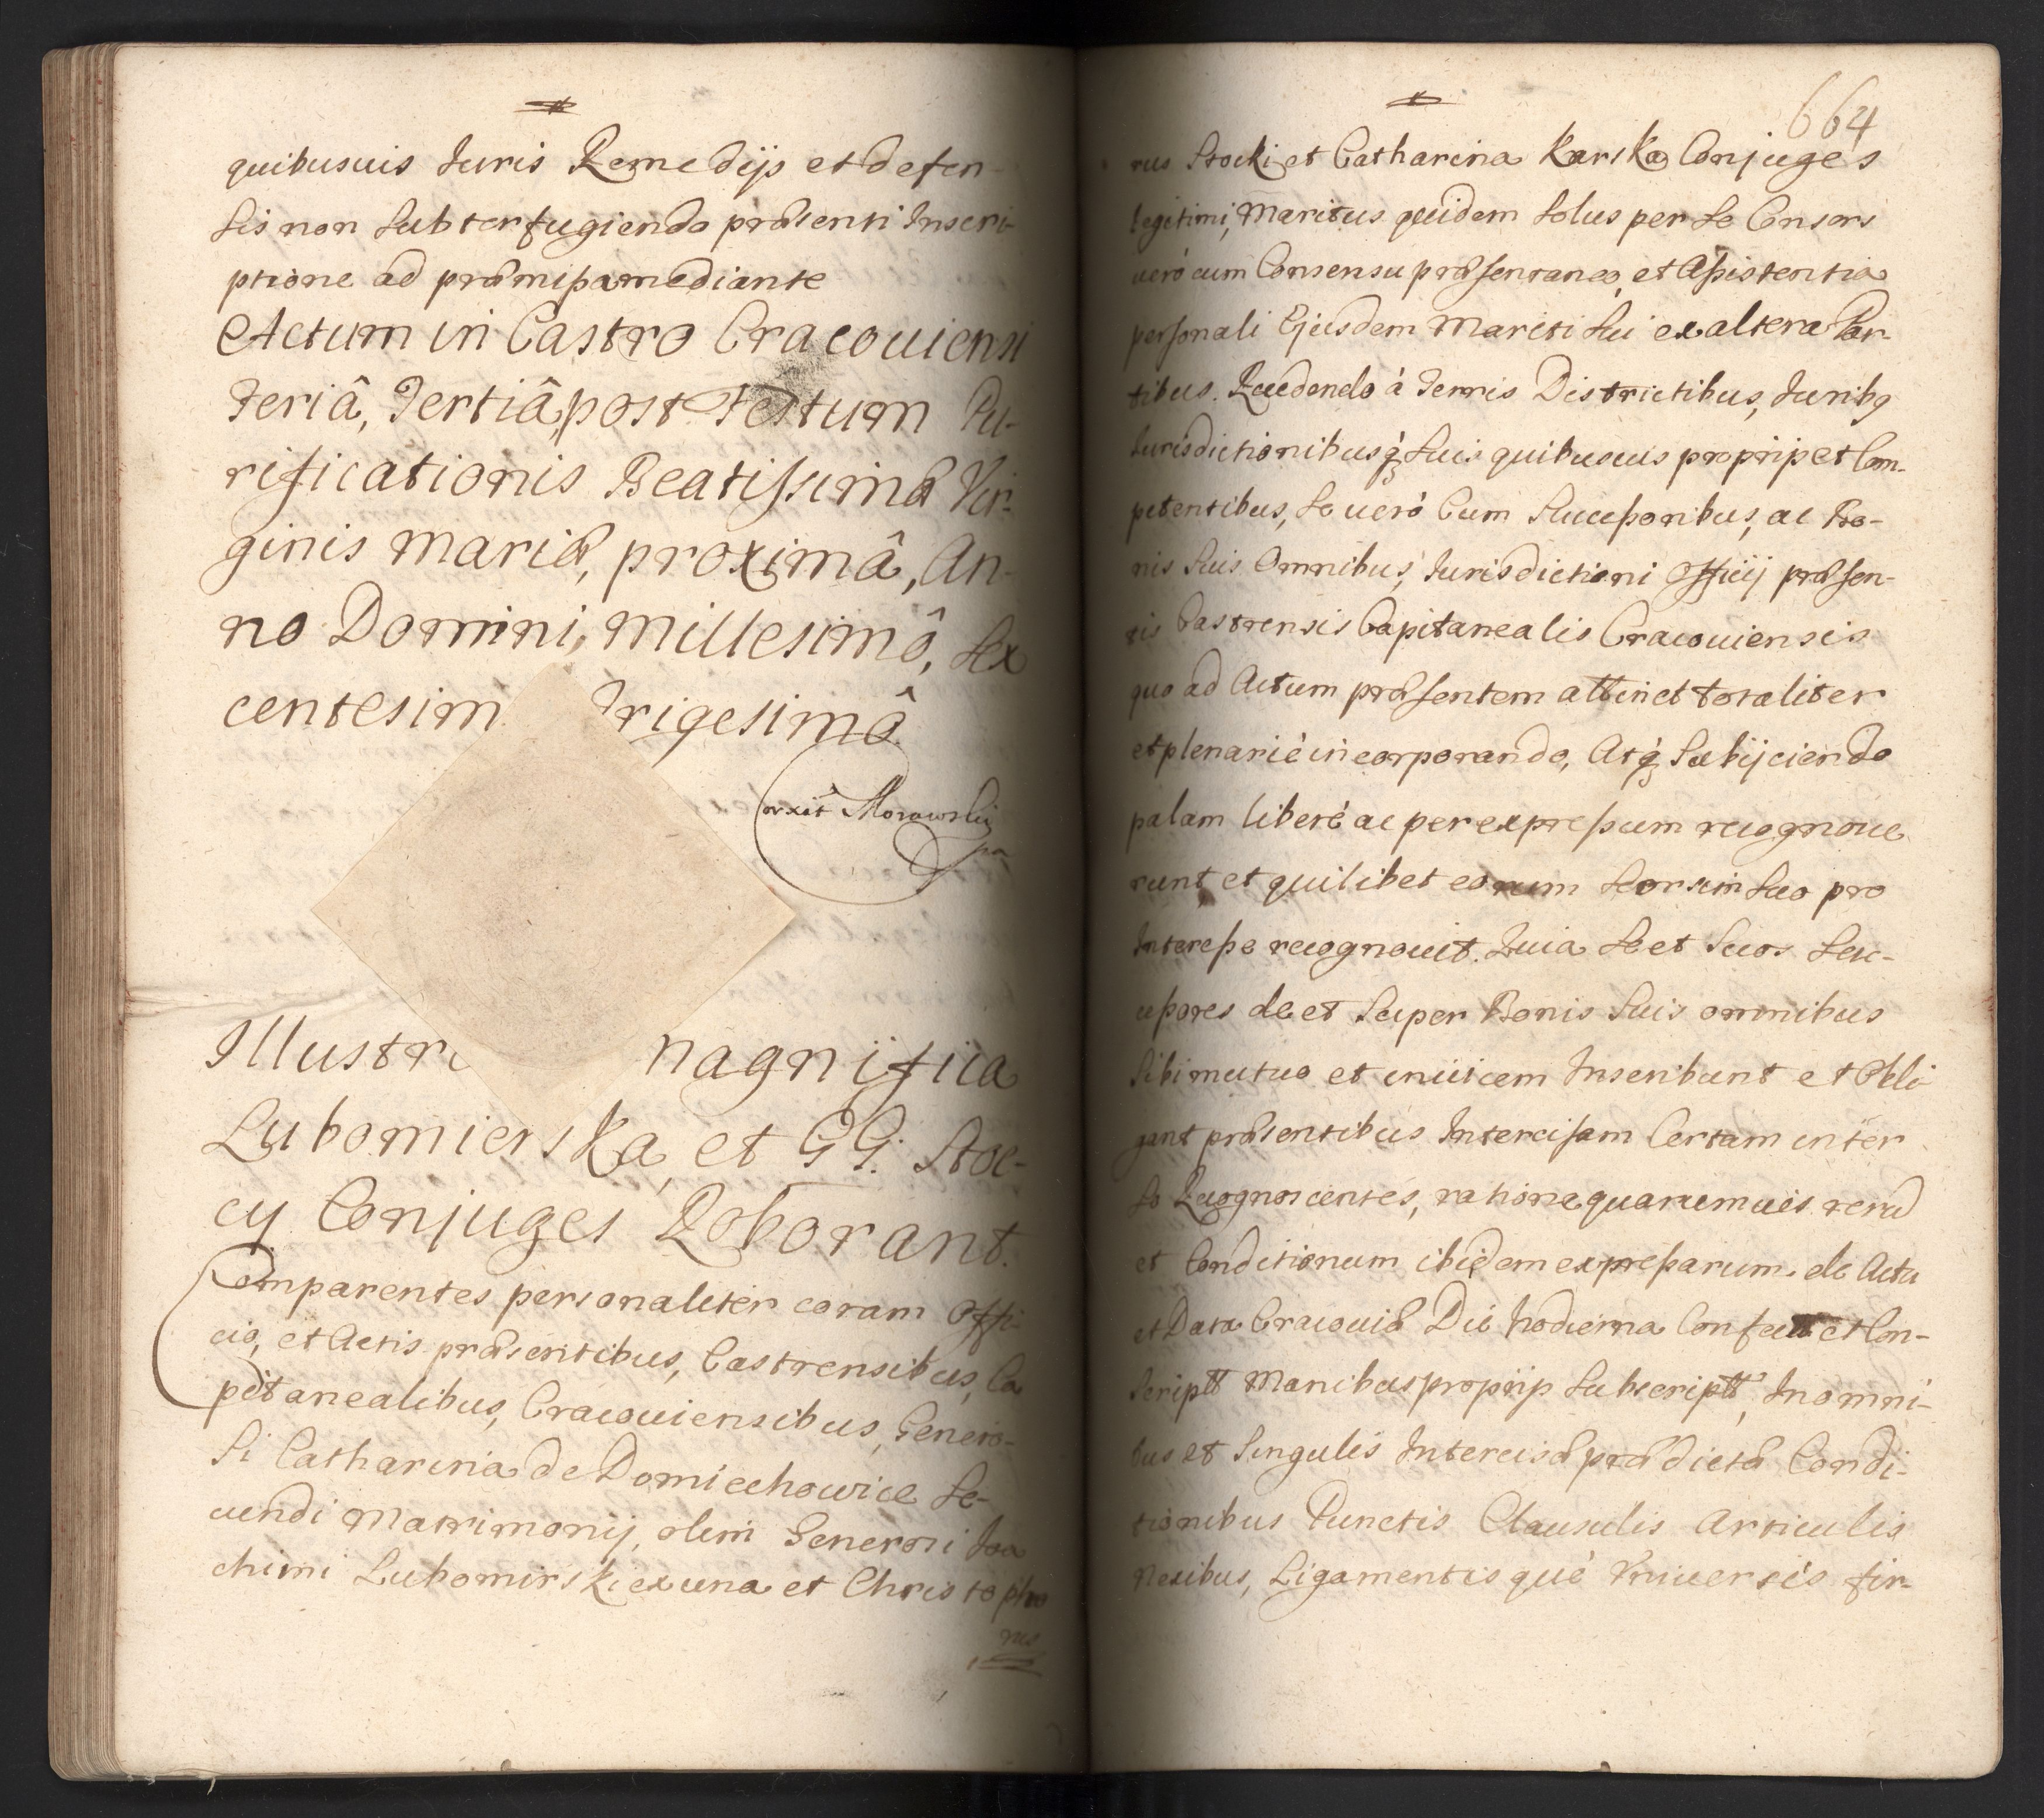 quibusuis Iuris Remedijs et defen-
sis non subterfugiendo præsenti Inscri-
ptione ad præmissa mediante
Actum in Castro Cracouiensi
Feriâ, Tertiâ, post Festum Pu-
rificationis Beatissimæ Vir-
ginis Mariæ, proximâ, An-
no Domini, Millesimô, sex
centesim Trigesimô
orxit Morawsky
Illustr magnifica
Lubomierska, et GG. Stoc-
cy Conjuges Roborant.
Comparentes personaliter coram Offi-
cio, et Actis præsentibus, Castrensibus, Ca
pitanealibus, Cracouiensibus, Genero-
si Catharina de Domiechowice Se-
cundi Matrimonij, olim Generosi Joa
chimi Lubomirski ex una et Christopho
rus
664
rus Stocki et Catharina Karska Conjuges
legitimi, Maritus quidem solus per se Consors
uerò cum Consensu præsentaneo, et Assistentia
personali Ejusdem Mariti sui ex altera Par-
tibus. Recedendo à Terris Districtibus, Juribq
Iurisdictionibusq; suis quibusuis proprijs et Com-
petentibus, se uerò Cum Successoribus, ac Bo-
nis suis Omnibus, Iurisdictioni Officij præsen-
tis Castrensis Capitanealis Cracouiensis
quo ad Actum præsentem attinet totaliter
et plenariè incorporando, Atq; Subijciendo
palam liberè ac per expressum recognoue
runt, et quilibet eorum seorsim suo pro
Interesse recognouit. Quia se et suos suc-
cessores de et super Bonis suis omnibus
sibi mutuo et inuicem Inscribunt et Obli
gant præsentibus Intercisam Certam inter
se Recognoscentes, ratione quarumuis rerũ
et Conditionum ibidem expressarum. de Actu
et Data Cracouiæ Die hodierna Confectt et Con-
scriptt Manibus proprijs subscriptt, In omni-
bus et Singulis Intercisæ prædictæ Condi-
tionibus Punctis Clausulis Articulis
Nexibus, Ligamentisquè Vniuersis fir-